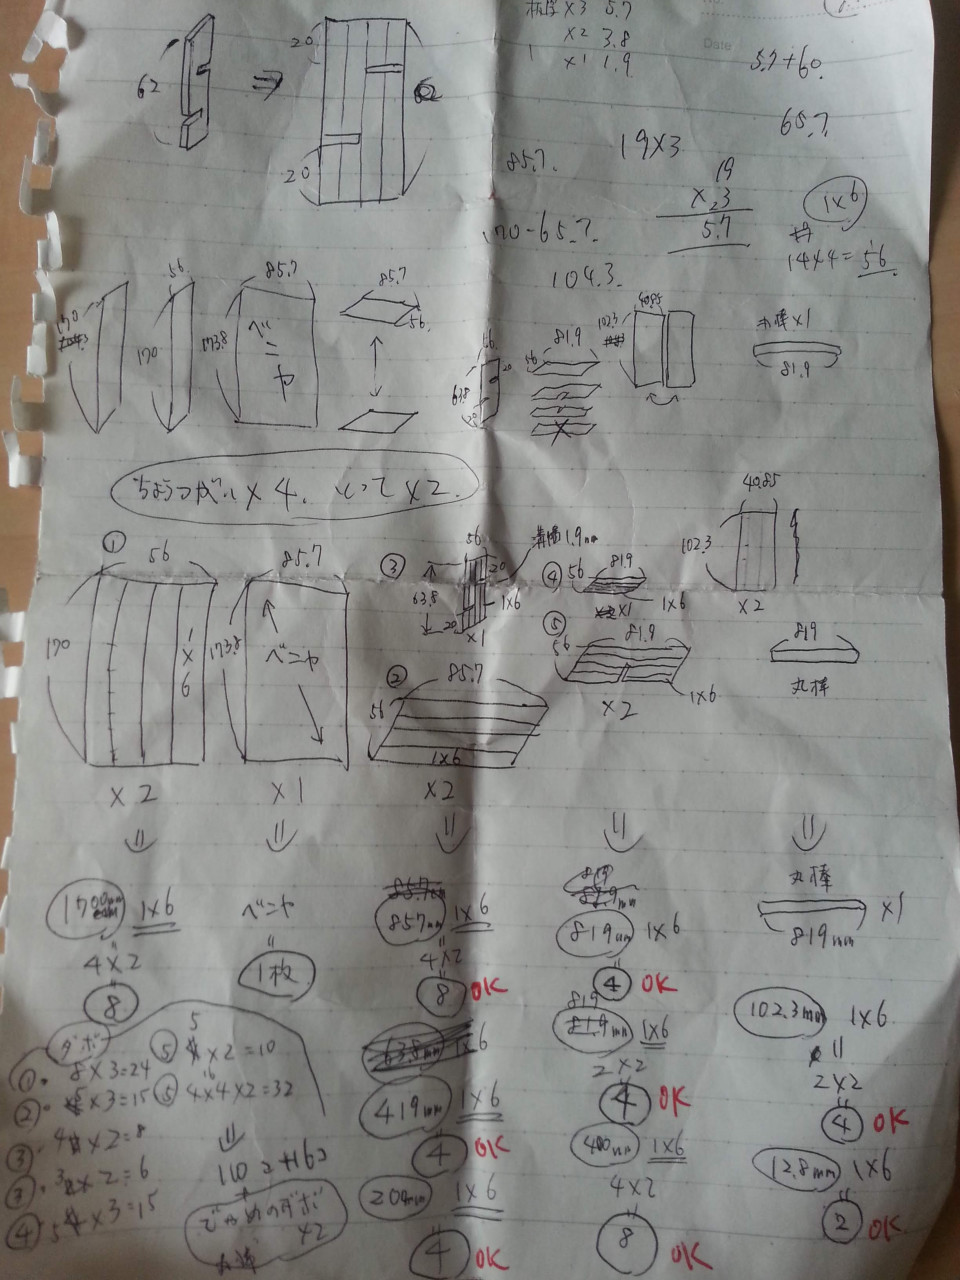 板厚×3 5.7
×2 3.8
×1 1.9
No.
Date
5.7+60.
65.7
20
62
62
20
85.7.
19×3
19
×3
5.7
1×6
14×4=56
170-65.7.
104.3.
56
85.7
85.7
56.
170
170
173.8
ベニヤ
56
63.8
20
56
81.9
102.3
40.85
丸棒×1
81.9
ちょうつがい×4. とって×2.
①
56
170
1×6
×2
85.7
173.8
ベニヤ
×1
②
85.7
56
1×6
×2
③
56
溝幅1.9mm
63.8
20
20
1×6
×1
④
56
81.9
×1
1×6
⑤
56
81.9
1×6
×2
40.85
102.3
×2
819
丸棒
1700mm 1×6
4×2
8
ベニヤ
1枚
857mm 1×6
4×2
8 OK
419mm 1×6
4 OK
200mm 1×6
4 OK
819mm 1×6
4 OK
819
81.9mm 1×6
2×2
4 OK
400mm 1×6
4×2
8 OK
丸棒
×1
819mm
102.3mm 1×6
2×2
4 OK
12.8mm 1×6
2 OK
ダボ
① 8×3=24
② 5×3=15
③ 4×2=8
③ 3×2=6
④ 5×3=15
⑤ 5×2=10
⑤ 4×4×2=32
110コ
×2